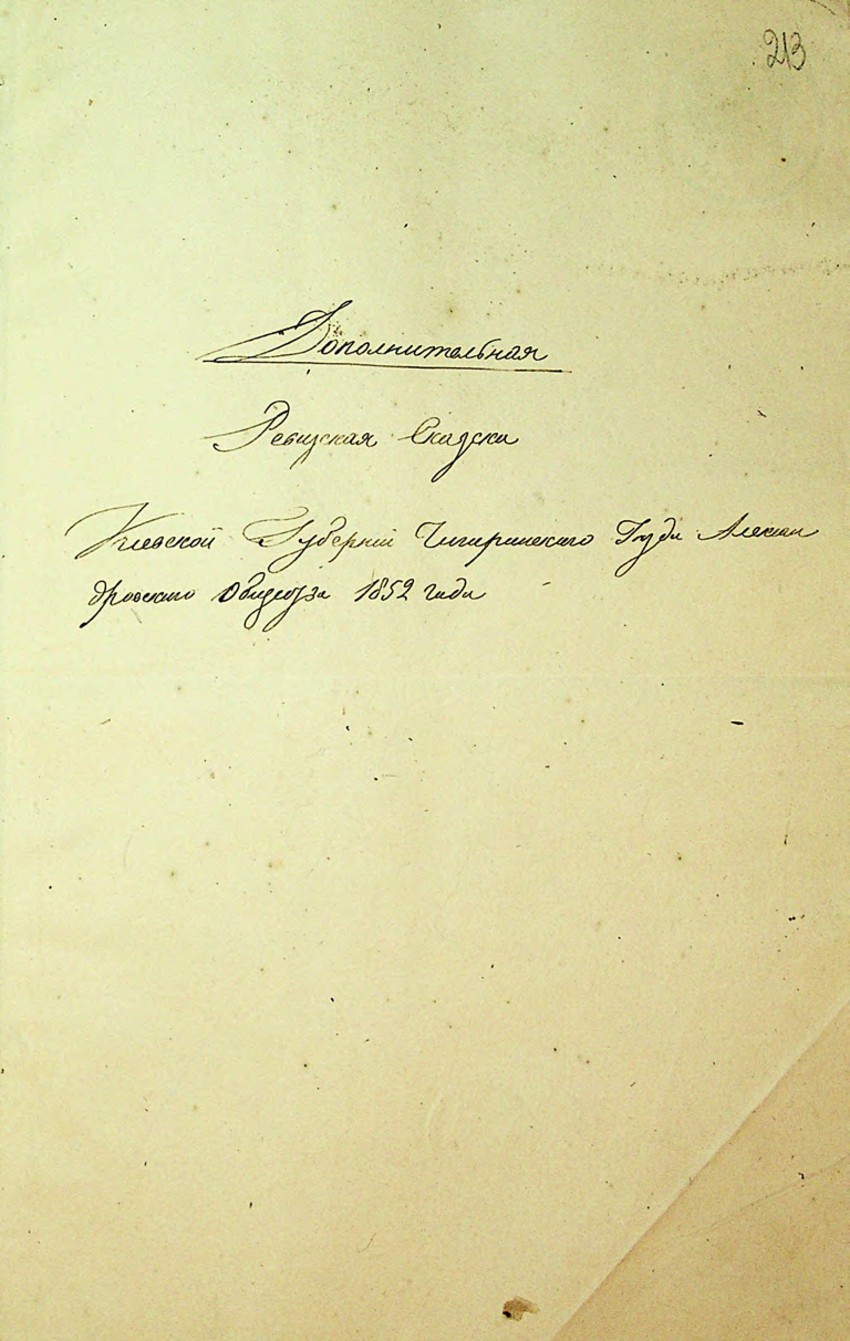 213
Дополнительная
Ревизская Сказска
Киевской Губернии Чигиринского Алексан
дровского 1852 года